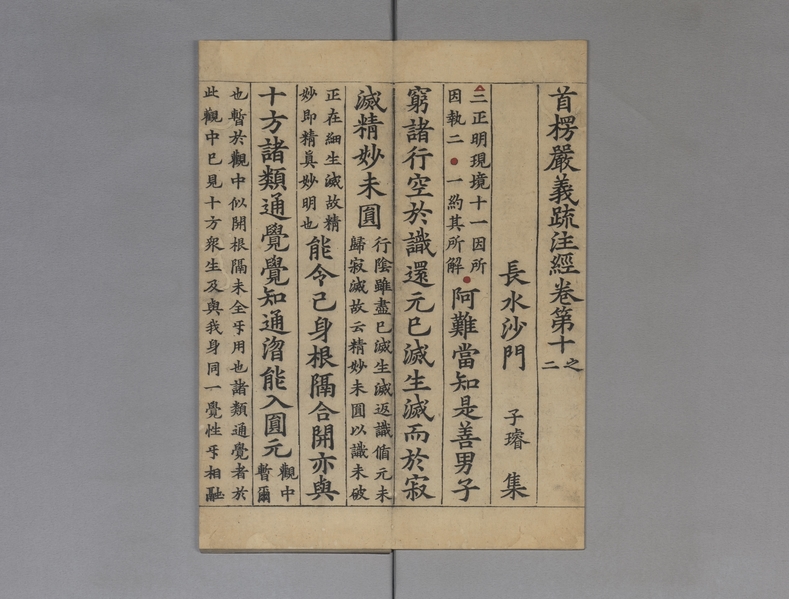 首楞嚴義疏注經卷第十之二
長水沙門 子璿 集
三正明現境十一因所
因執二 一約其所解 阿難當知是善男子
窮諸行空於識還元已滅生滅而於寂
滅精妙未圓 行陰雖盡已滅生滅返識偱元未
歸寂滅故云精妙未圓以識未破
正在細生滅故精
妙即精真妙明也 能令己身根隔合開亦與
十方諸類通覺覺知通㳷能入圓元 觀中
暫爾
也暫於觀中似開根隔未全𠃔用也諸類通覺者於
此觀中已見十方衆生及與我身同一覺性𠃔相融